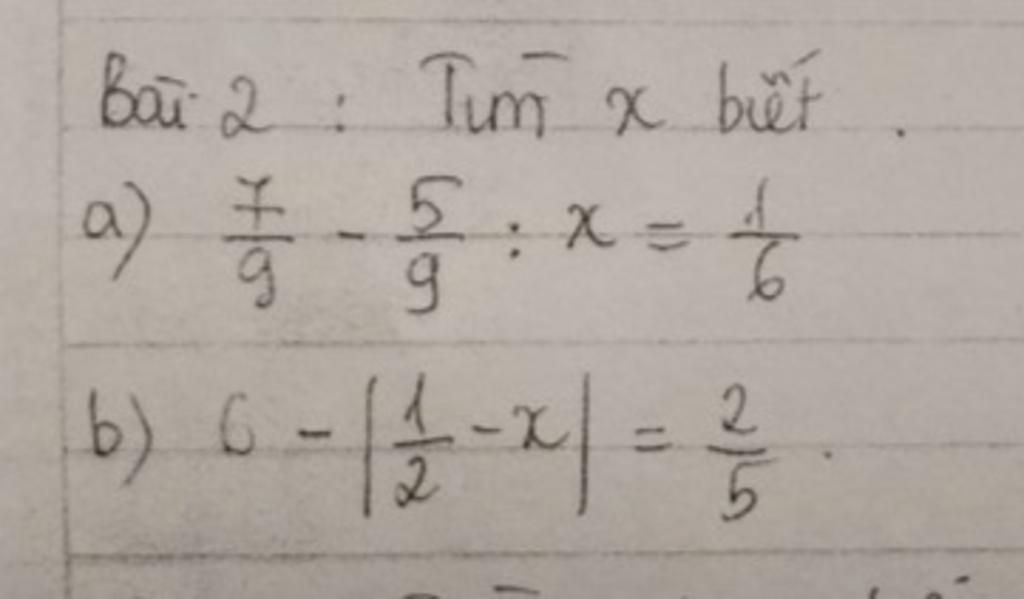 Bài 2 : Tìm x biết .
a) 7/9 - 5/9 : x = 1/6
b) 6 - |1/2 - x| = 2/5 .